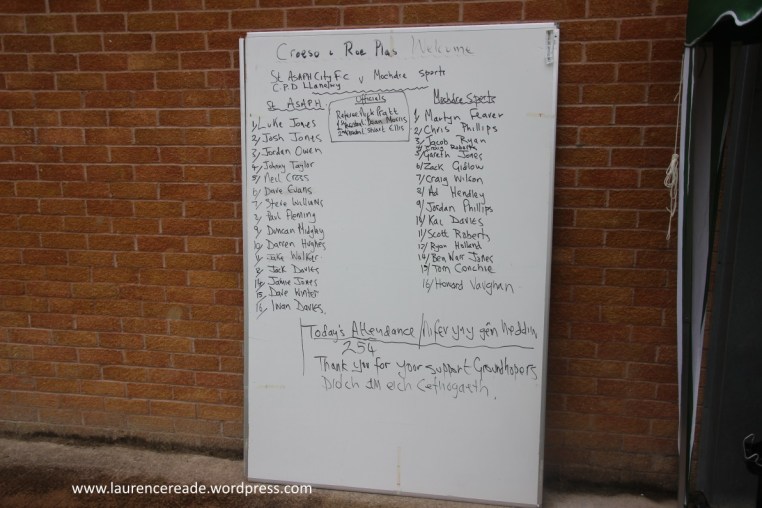 Croeso i Roe Plas / Welcome
St ASAPH City F.C v Mochdre Sports
C.P.D LLanelwy
St ASAPH
1/ Luke Jones
2/ Josh Jones
3/ Jordan Owen
4/ Johnny Taylor
5/ Neil Cross
6/ Dave Evans
7/ Steve Williams
8/ Paul Fleming
9/ Duncan Midgley
10/ Darren Hughes
11/ Jake Walker
12/ Jack Davies
14/ Jamie Jones
15/ Dave Winter
16/ Iwan Davies.
Officials
Referee Pratt
Morris
Stuart Ellis
Mochdre Sports
1/ Martyn Feaver
2/ Chris Phillips
3/ Jacob Ryan
Craig Roberts
5/ Gareth Jones
6/ Zack Gidlow
7/ Craig Wilson
8/ Ad Hendley
9/ Jordan Phillips
10/ Kai Davies
11/ Scott Roberts
12/ Ryan Holland
14/ Ben Warr Jones
15/ Tom Conchie
16/ Howard Vaughan
Today's Attendance / Nifer
254
Thank you for your support Groundhoppers
Diolch am eich Cefnogaeth.
www.laurencereade.wordpress.com